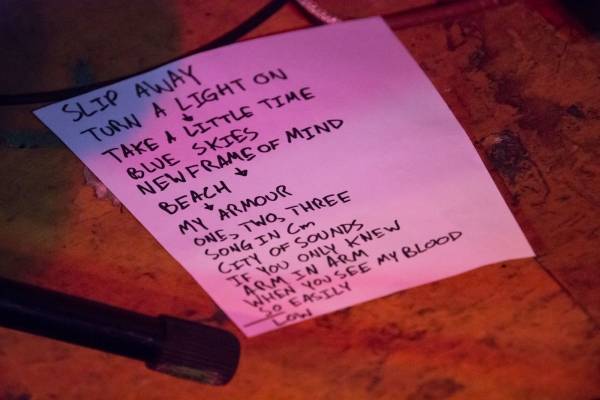 SLIP AWAY
TURN A LIGHT ON
TAKE A LITTLE TIME
BLUE SKIES
NEW FRAME OF MIND
BEACH
MY ARMOUR
ONE, TWO, THREE
SONG IN Cm
CITY OF SOUNDS
IF YOU ONLY KNEW
ARM IN ARM
WHEN YOU SEE MY BLOOD
SO EASILY
LOW